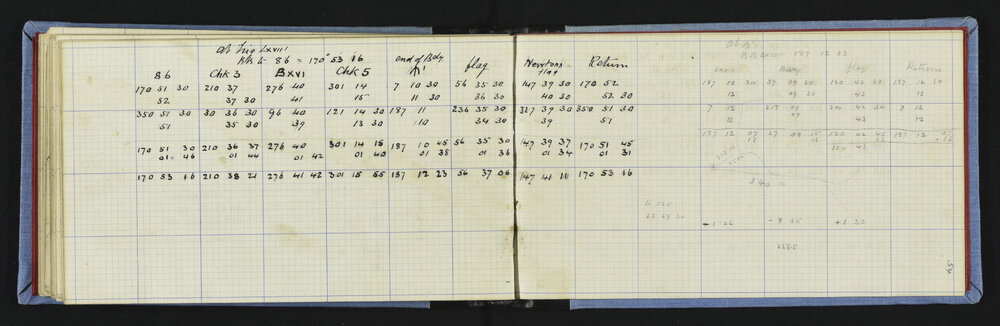 At Trig LXVIII
Bk to 86 = 170 53 16
86 Chk 3 BXVI Chk 5 end of Bdy flag Newtons flag Return
170 51 30 210 37 276 40 301 14 7 10 30 56 35 30 147 39 30 170 52
52 37 30 41 15 11 36 30 40 30 52 30
350 51 30 30 36 30 96 40 121 14 30 187 11 236 35 30 327 39 30 350 51 30
51 35 30 39 13 30 10 34 30 39 51
170 51 30 210 36 37 276 40 301 14 15 187 10 45 56 35 30 147 39 37 170 51 45
01 46 01 44 01 42 01 40 01 38 01 36 01 34 01 31
170 53 16 210 38 21 276 41 42 301 15 55 187 12 23 56 37 06 147 41 11 170 53 16
187 12 23
flag Return
187 12 30 39 09 30 120 42 30 187 12 30
12 09 30 43 12
7 12 219 09 300 43 30 7 12
12 07 43 12
187 12 07 37 09 15 120 42 45 187 12 07
120 43
22 59 30
-1-26 -8 35 +1 30
228.5
34